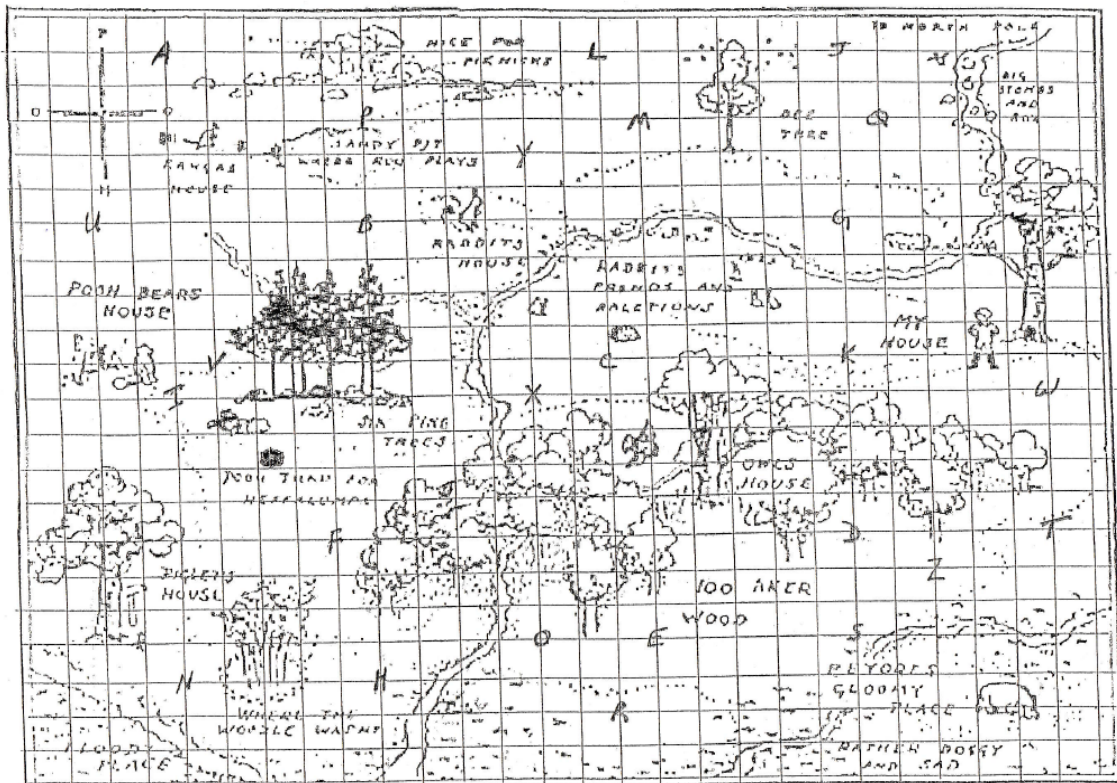 P
A
NICE FOR
PIKNICKS
L
J
TO NORTH POLE
BIG
STONES
AND
ROX
O
O
P
M
BEE
TREE
Q
KANGAS
HOUSE
SANDY PIT
WHERE ROO PLAYS
Y
H
U
B
G
RABBITS
HOUSE
RABBITS
FRENDS AND
RALETIONS
POOH BEARS
HOUSE
MY
HOUSE
V
C
K
I
X
W
SIX PINE
TREES
POOH TRAP FOR
HEFFALUMPS
OWLS
HOUSE
F
D
T
Z
PIGLETS
HOUSE
100 AKER
WOOD
O
E
S
N
H
R
EEYORES
GLOOMY
PLACE
WHERE THE
WOOZLE WASNT
FLOODY
PLACE
RATHER BOGGY
AND SAD